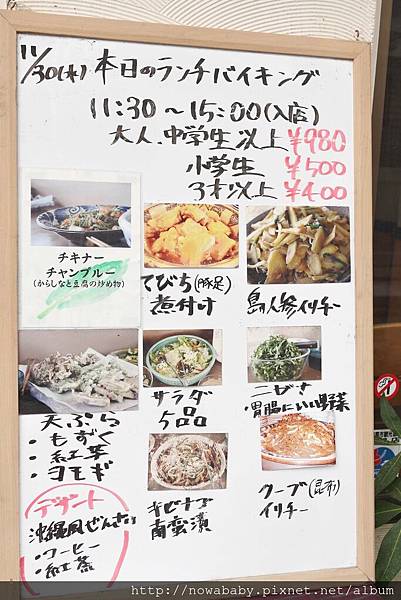 11/30(木) 本日のランチバイキング
11:30～15:00(入店)
大人.中学生以上 ¥980
小学生 ¥500
3才以上 ¥400
チキナー
チャンプルー
(からしなと豆腐の炒め物)
てびち(豚足)
煮付け
島人参イリチー
天ぷら
・もずく
・紅芋
・ヨモギ
サラダ
5品
ニガナ
・胃腸にいい野菜
キビナゴ
南蛮漬
クーブ(昆布)
イリチー
デザート
沖縄風ぜんざい
・コーヒー
・紅茶
http://nowababy.pixnet.net/album